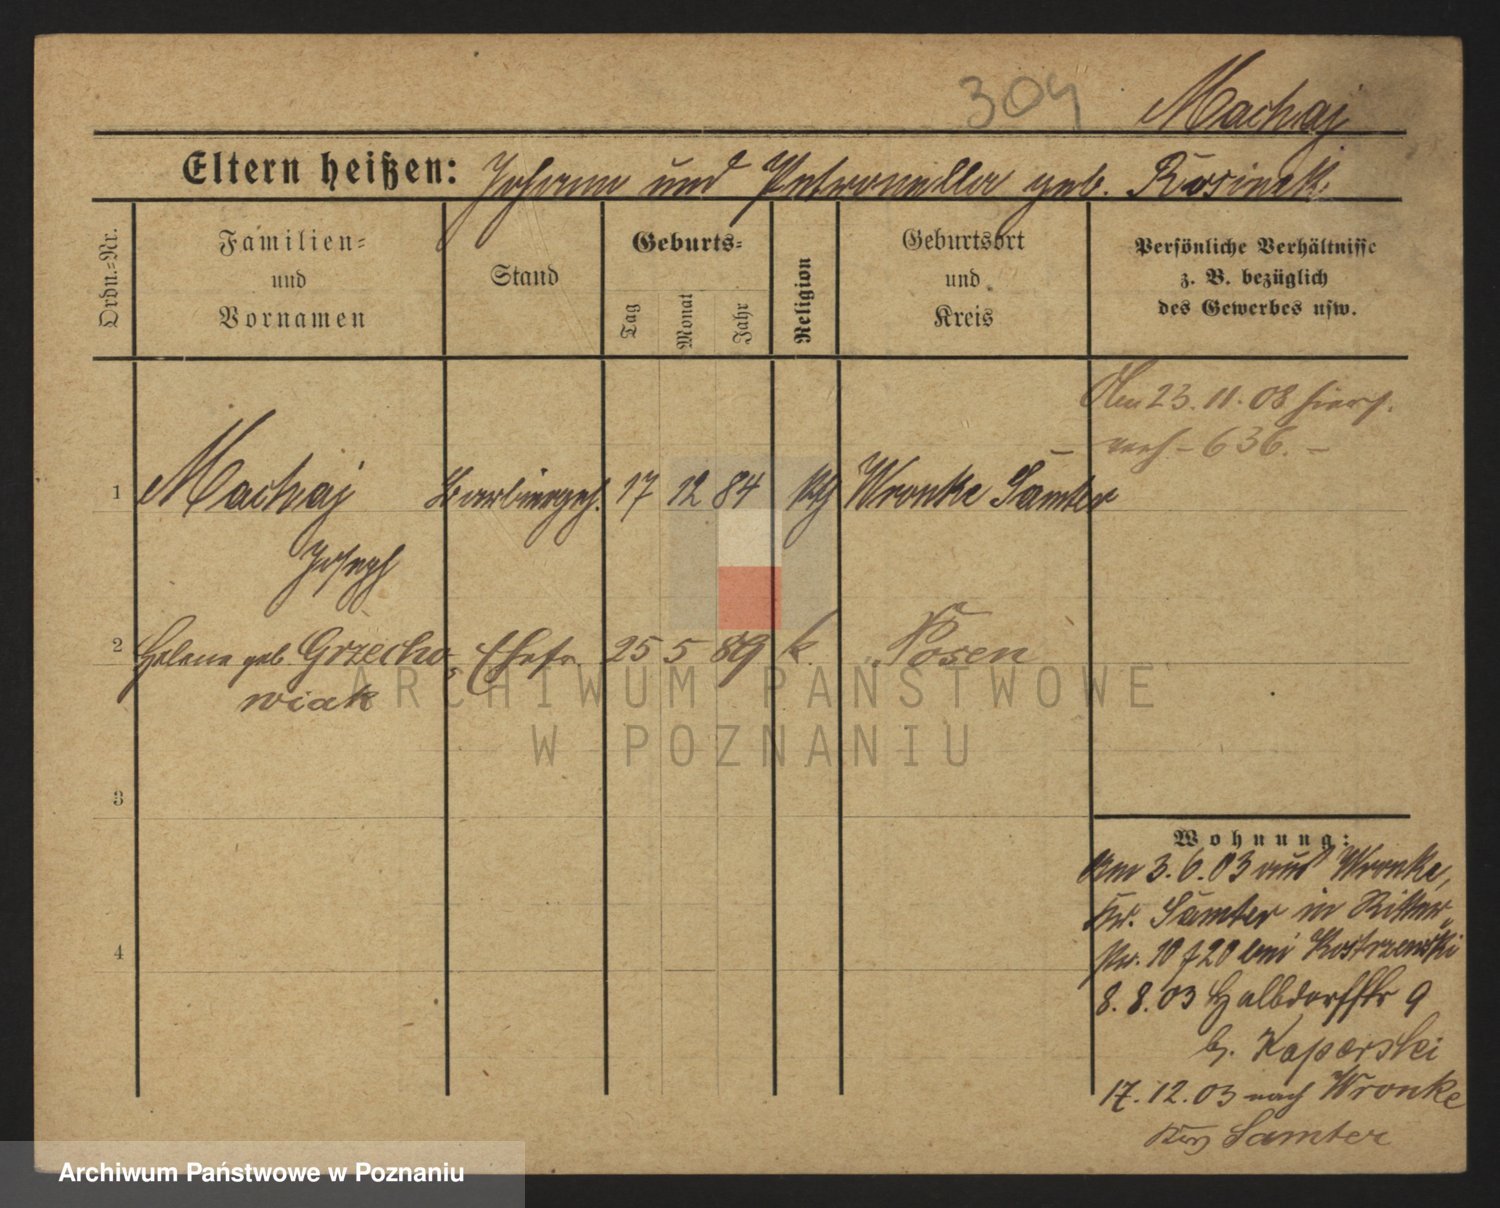 309
Machaj
Eltern heißen: Johann und Petronella geb. Kosinek.
Ordn.-Nr.
Familien- und Vornamen
Stand
Geburts-
Tag
Monat
Jahr
Religion
Geburtsort und Kreis
Persönliche Verhältnisse z. B. bezüglich des Gewerbes usw.
Am 23.11.08 hiers.
- 636. -
1 Machaj Barbiergeh. 17 12 84 Kth Wronke Samter
Joseph
2 Helene geb. Grzecho- Ehefr. 25 5 89 k. Posen
wiak
3
4
Wohnung:
Am 3.6.03 aus Wronke,
Kr. Samter in Ritter-
str. 10 f 20 bei Kostrzewski
8.8.03 Halbdorfstr 9
b. Kaperski
17.12.03 nach Wronke
Samter
ARCHIWUM PAŃSTWOWE
W POZNANIU
Archiwum Państwowe w Poznaniu